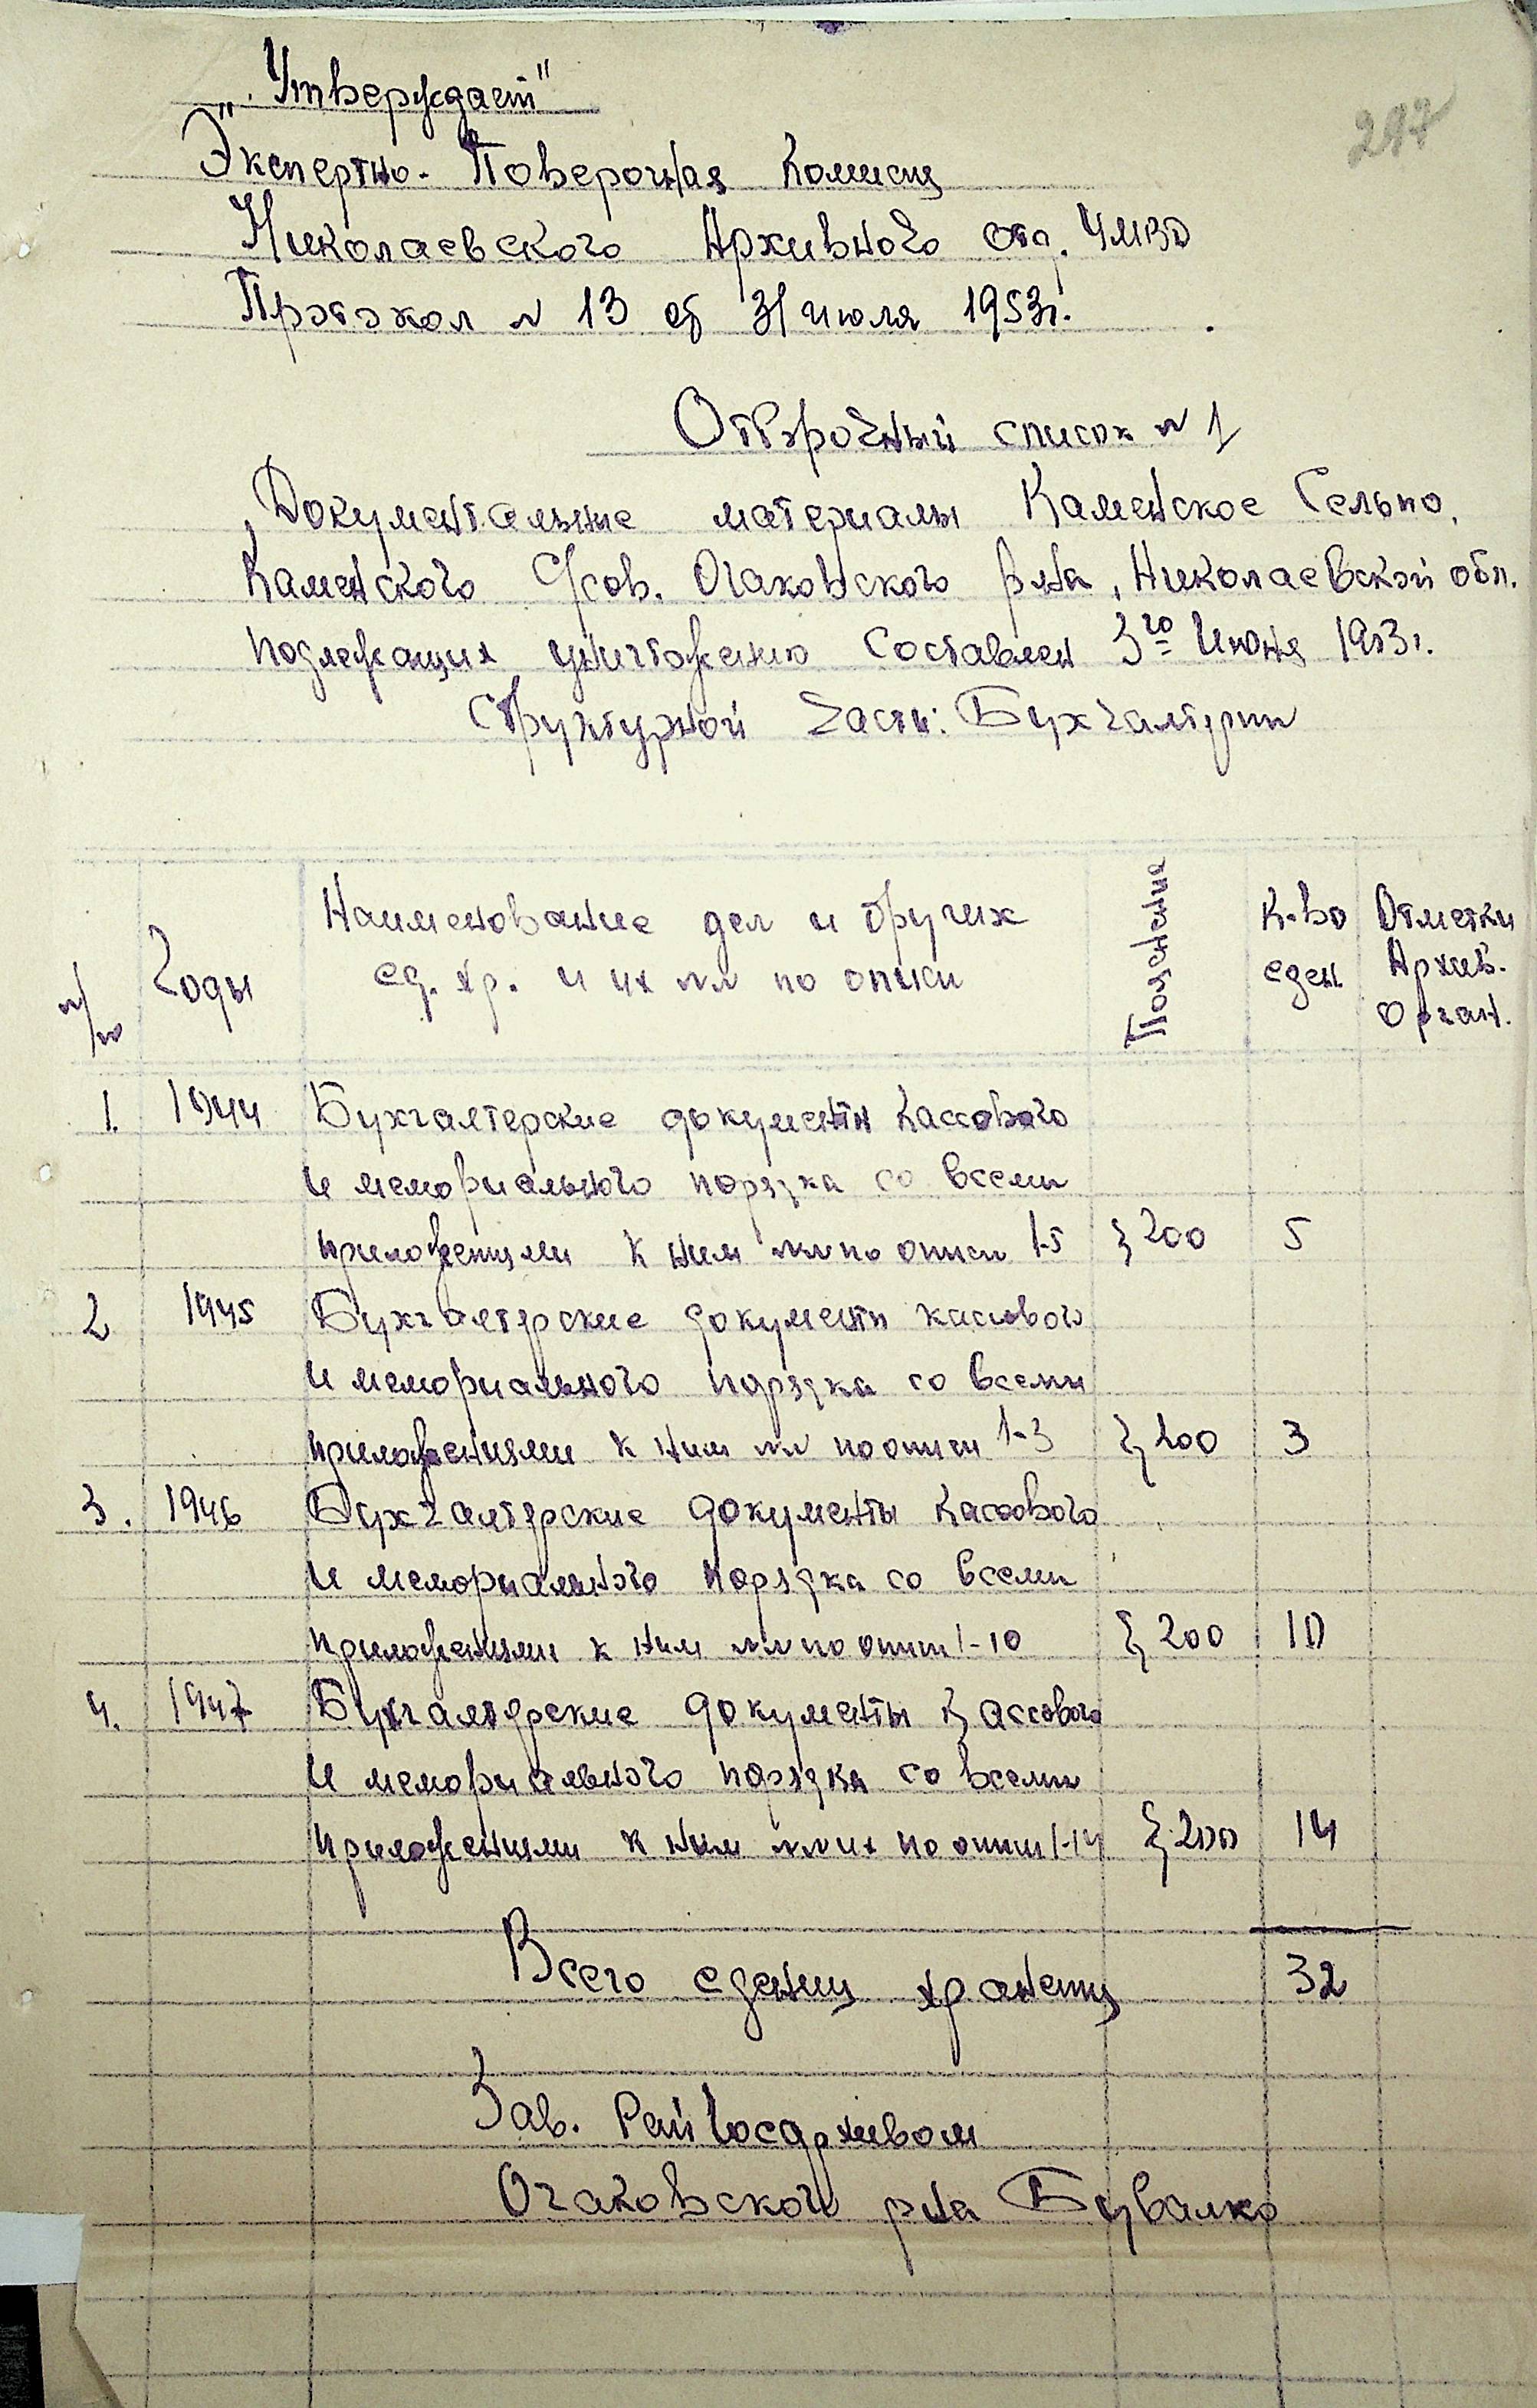 297
„Утверждает"
Экспертно-Поверочная Комисия
Николаевского Архивного отд. УМВД
Протокол № 13 от 31 июля 1953г.
Отборочный список № 1
Документальные материалы Каменское Сельпо,
Каменского С/сов. Очаковского р-на, Николаевской обл.
подлежащих уничтожению составлен 3го Июня 1953г.
Структурной части: Бухгалтерии
№/№ Годы Наименование дел и других ед. хр. и их №№ по описи Пояснения К-во един Отметки Архив. Орган.
1. 1944 Бухгалтерские документы кассового
и мемориального порядка со всеми
приложениями к ним №№ по описи 1-5 } 200 5
2 1945 Бухгалтерские документы касового
и мемориального порядка со всеми
приложениями к ним №№ по описи 1-3 } 200 3
3. 1946 Бухгалтерские документы Кассового
и мемориального порядка со всеми
приложениями к ним №№ по описи 1-10 } 200 10
4. 1947 Бухгалтерские документы Кассового
и мемориального порядка со всеми
приложениями к ним №№ их по описи 1-14 } 200 14
Всего едениц хранения 32
Зав. РайГосархивом
Очаковского р-на Бувалко